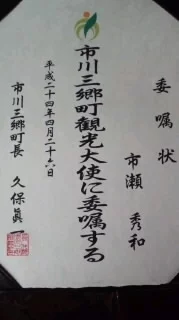 委嘱状
市瀬 秀和
市川三郷町観光大使に委嘱する
平成二十四年四月二十六日
市川三郷町長 久保眞一